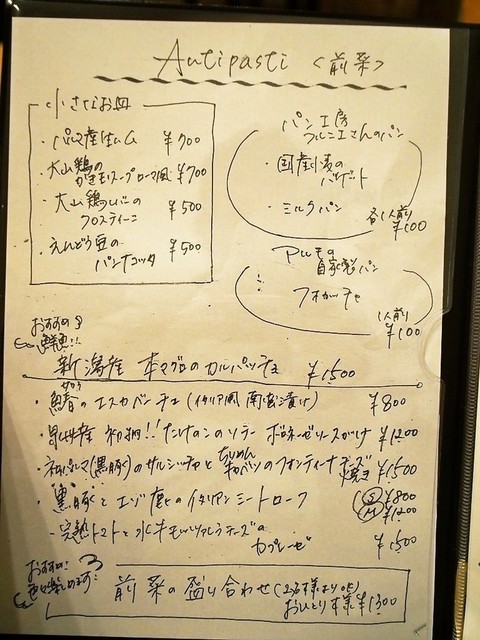 Antipasti <前菜>
小さなお皿
・パルマ産生ハム ¥700
・大山鶏の
かきモリスープローマ風 ¥700
・大山鶏レバーの
クロスティーニ ¥500
・えんどう豆の
パンナコッタ ¥500
パン工房
フルニエさんのパン
・国産小麦の
バゲット
・ミルクパン
各1人前
¥100
アルモの
自家製パン
フォカッチャ
1人前
¥100
おすすめ
鮮魚!!
新潟産 本マグロのカルパッチョ ¥1,500
・鰆のエスカベーチェ(イタリア風南蛮漬け) ¥800
さわら
・産 初物!!たけのこのソテー ボロネーゼソースがけ ¥1200
・パルマ(黒豚)のサルシッチャとちりめん
キャベツのフォンティーナチーズ
焼き ¥1,500
・黒豚とエゾ鹿のイタリアンミートローフ
Ⓢ ¥800
Ⓜ ¥1200
・完熟トマトと水牛モッツァレラチーズの
カプレーゼ ¥1,500
おすすめ!
前菜の盛り合わせ(2名様より OK)
おひとり様 ¥1300